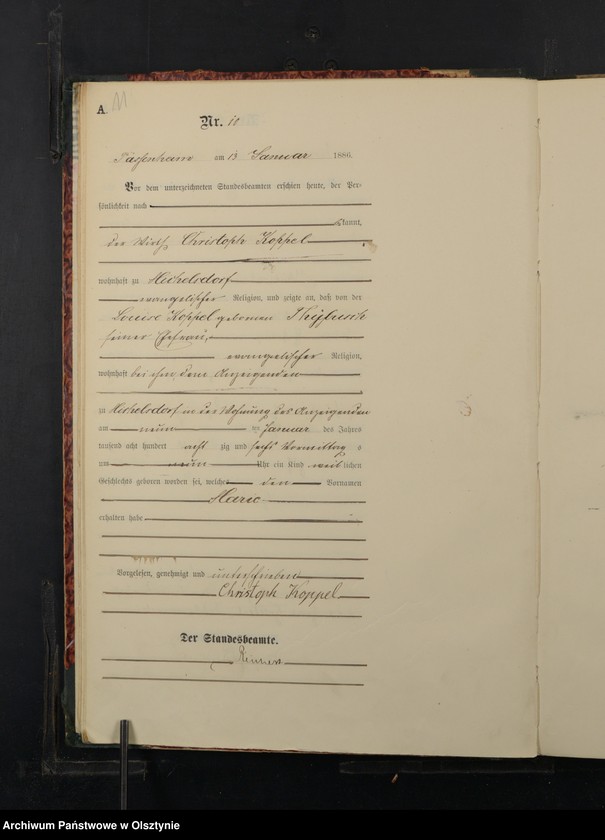 A. 11
Nr. 10
Passenheim am 13 Januar 1886.
Vor dem unterzeichneten Standesbeamten erschien heute, der Per-
sönlichkeit nach
kannt,
der Wirth Christoph Koppel
wohnhaft zu Michelsdorf
evangelischer Religion, und zeigte an, daß von der
Louise Koppel geborenen
seiner Ehefrau,
evangelischer Religion,
wohnhaft bei ihm, dem Anzeigenden
zu Michelsdorf in der Wohnung des Anzeigenden
am neun ten Januar des Jahres
tausend acht hundert acht zig und sechs Vormittag s
um neun Uhr ein Kind weib lichen
Geschlechts geboren worden sei, welches den Vornamen
Marie
erhalten habe
Vorgelesen, genehmigt und unterschrieben
Christoph Koppel
Der Standesbeamte.
Archiwum Państwowe w Olsztynie